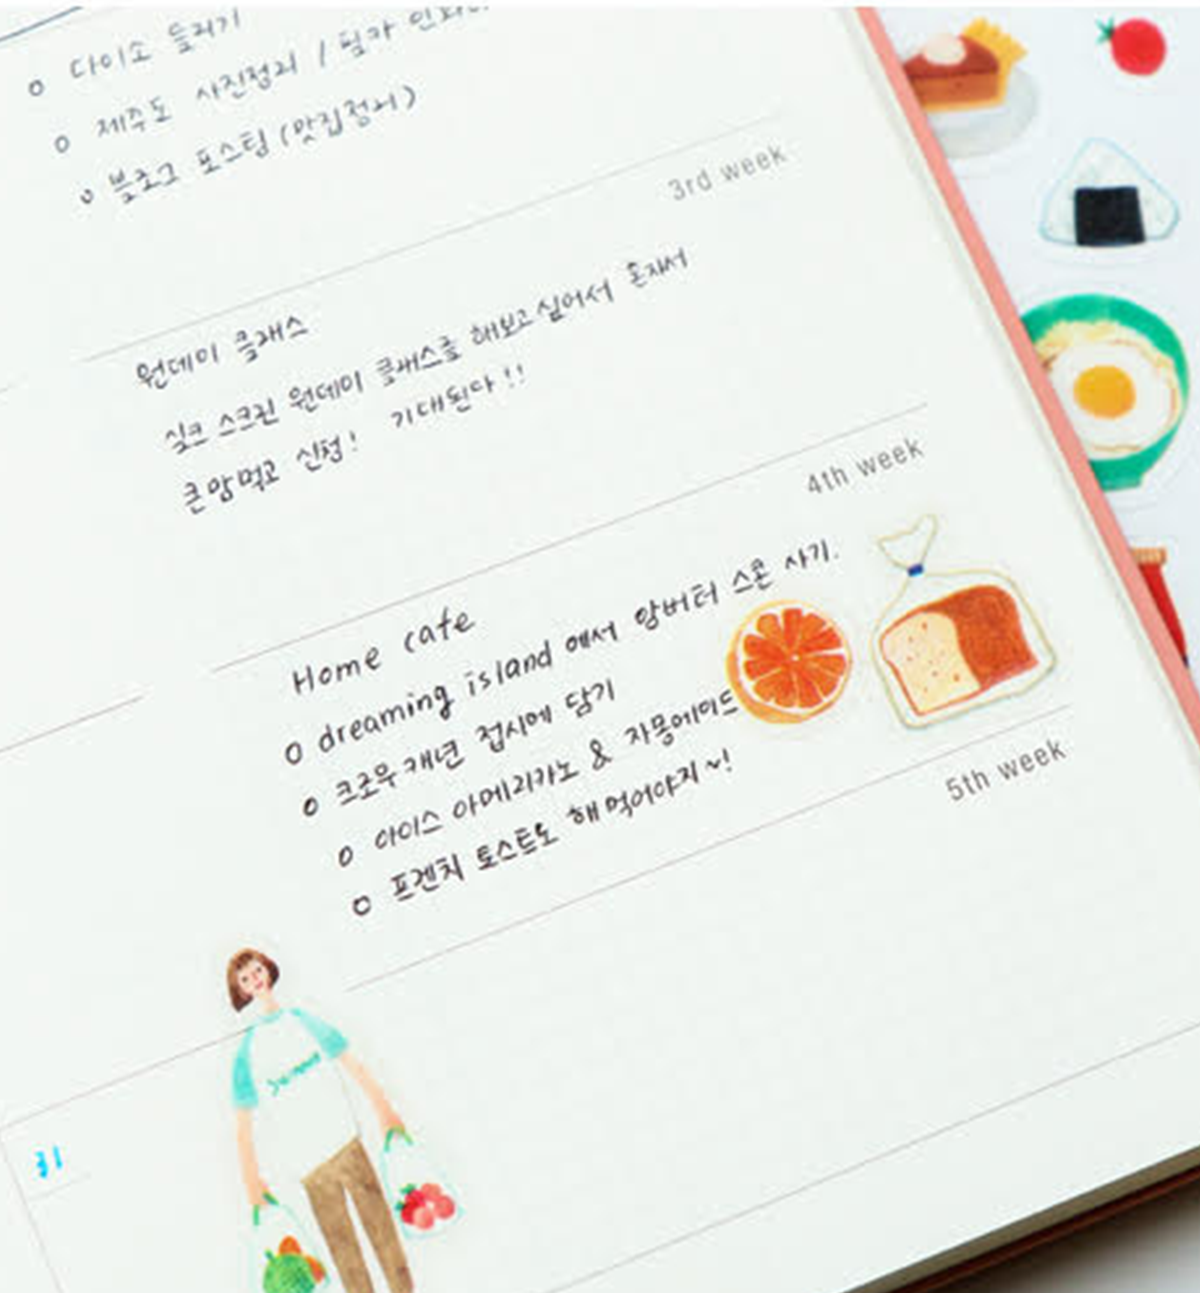 o 다이소 들리기
o 제주도 사진정리 / 필카
o 블로그 포스팅 (맛집정리)
3rd week
원데이 클래스
실크 스크린 원데이 클래스를 해보고싶어서 혼자서
큰맘먹고 신청! 기대된다!!
4th week
Home cafe
o dreaming island 에서 앙버터 스콘 사기.
o 크로우캐년 접시에 담기
o 아이스 아메리카노 & 자몽에이드
o 프렌치 토스트도 해먹어야지~!
5th week
Summer
31